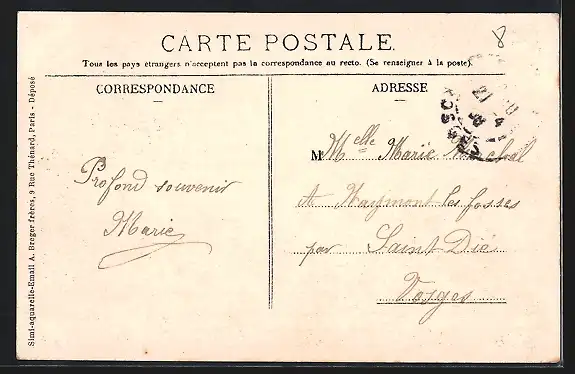 8
CARTE POSTALE.
Tous les pays étrangers n'acceptent pas la correspondance au recto. (Se renseigner à la poste).
CORRESPONDANCE
Profond souvenir
Marie
ADRESSE
M Melle Marie
A Naymont les fosses
par Saint Dié
Vosges
Simi-aquarelle-Email A. Breger frères, 9 Rue Thénard, Paris - Déposé